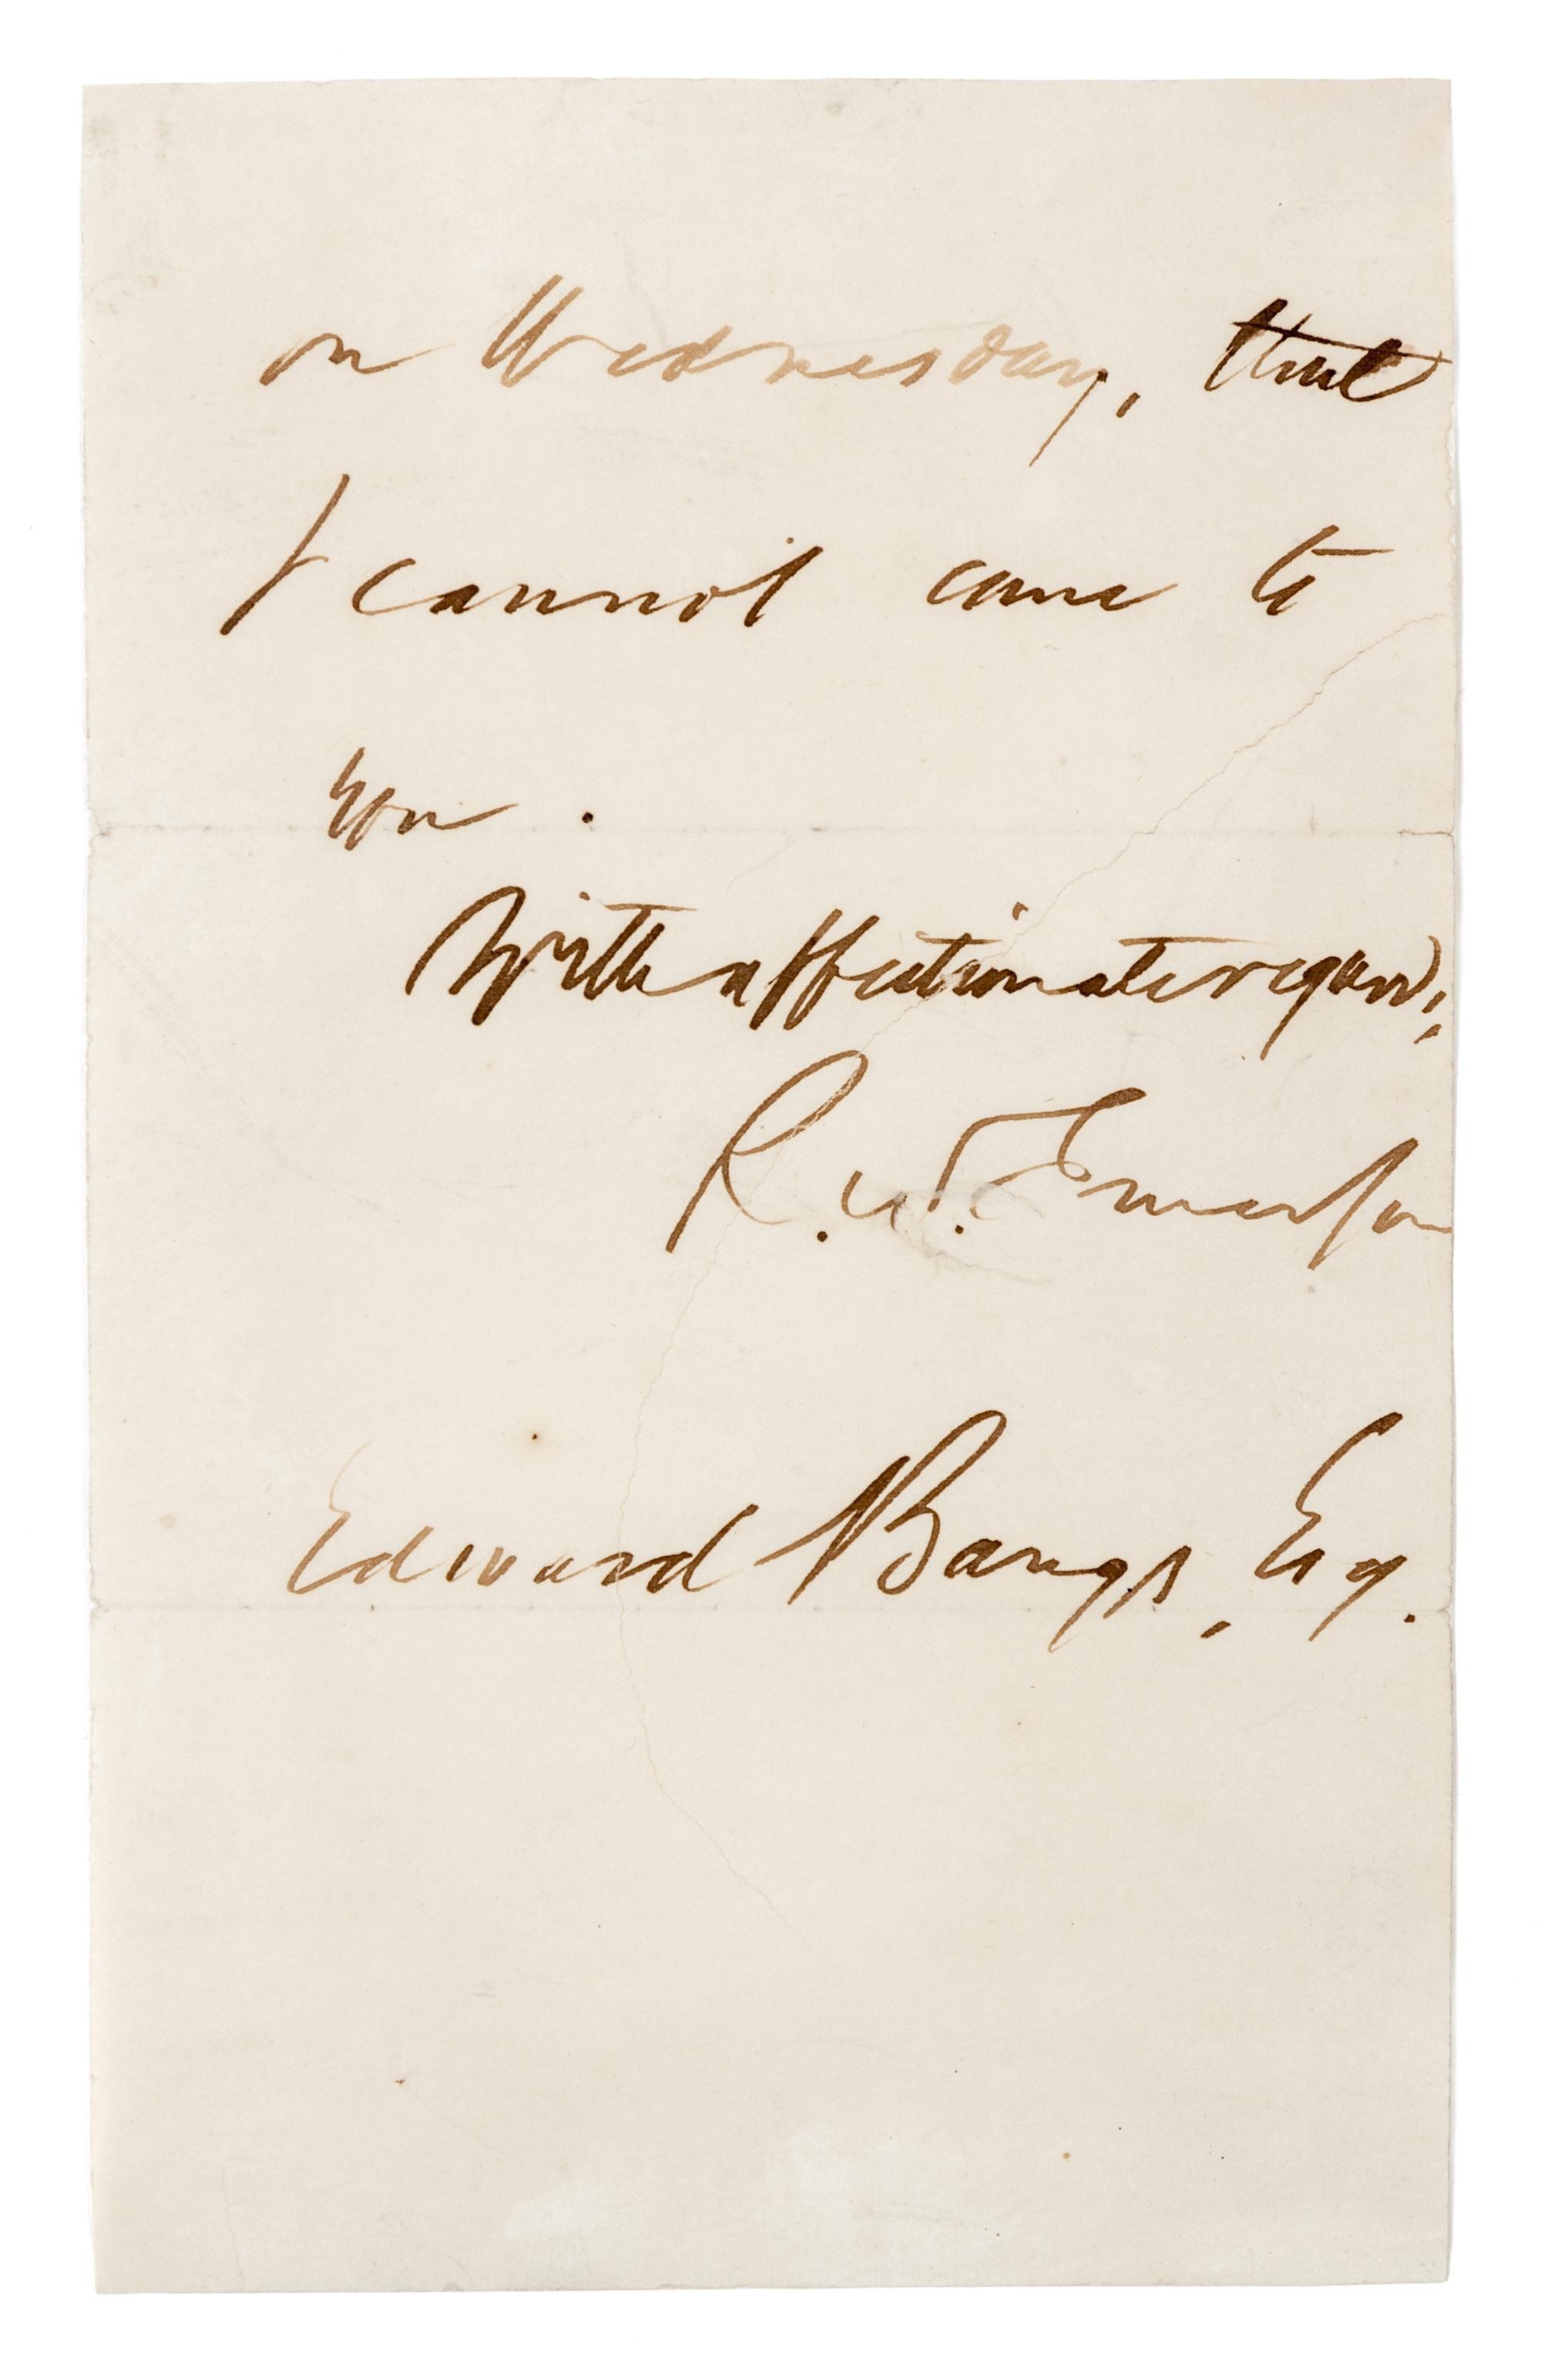 on Wednesday, that
I cannot come to
you.
With affectionate regard,
R. W. Emerson
Edward Bangs, Esq.